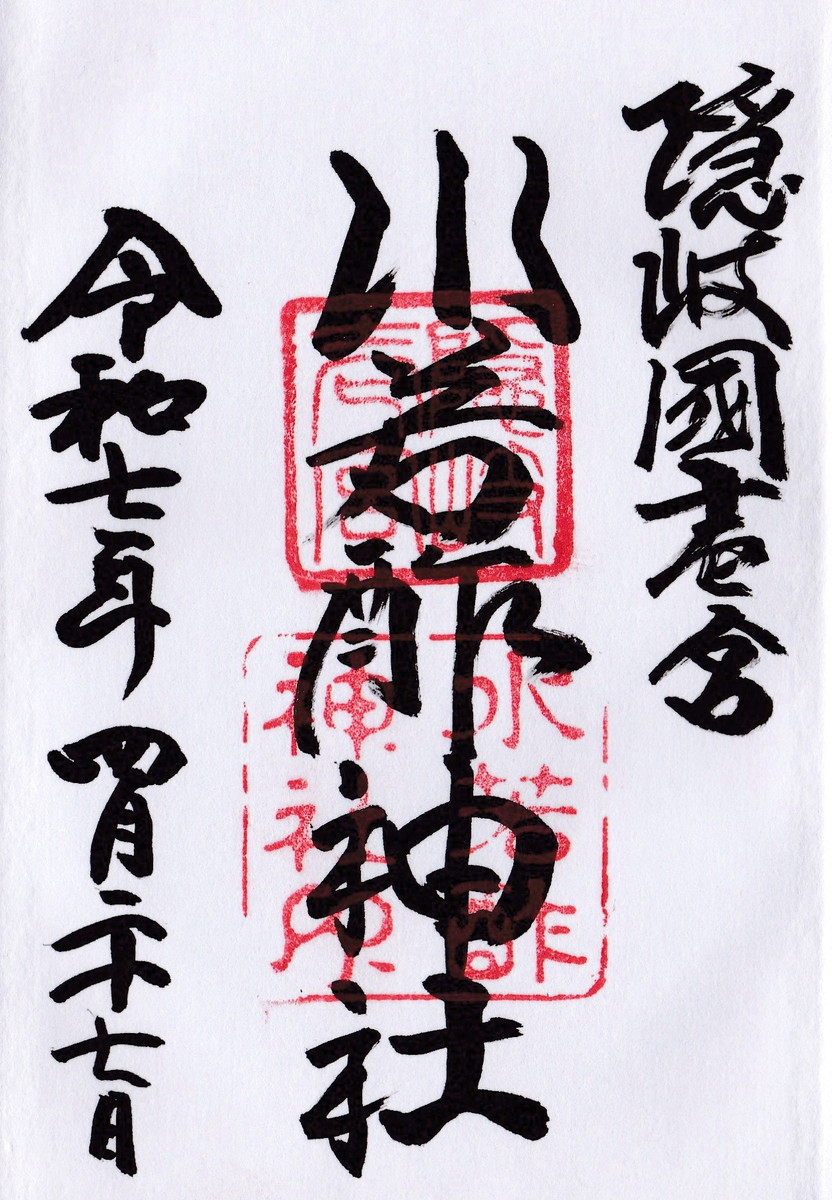 隠岐國壱宮
水若酢神社
水若酢
神社印
令和七年 四月二十七日